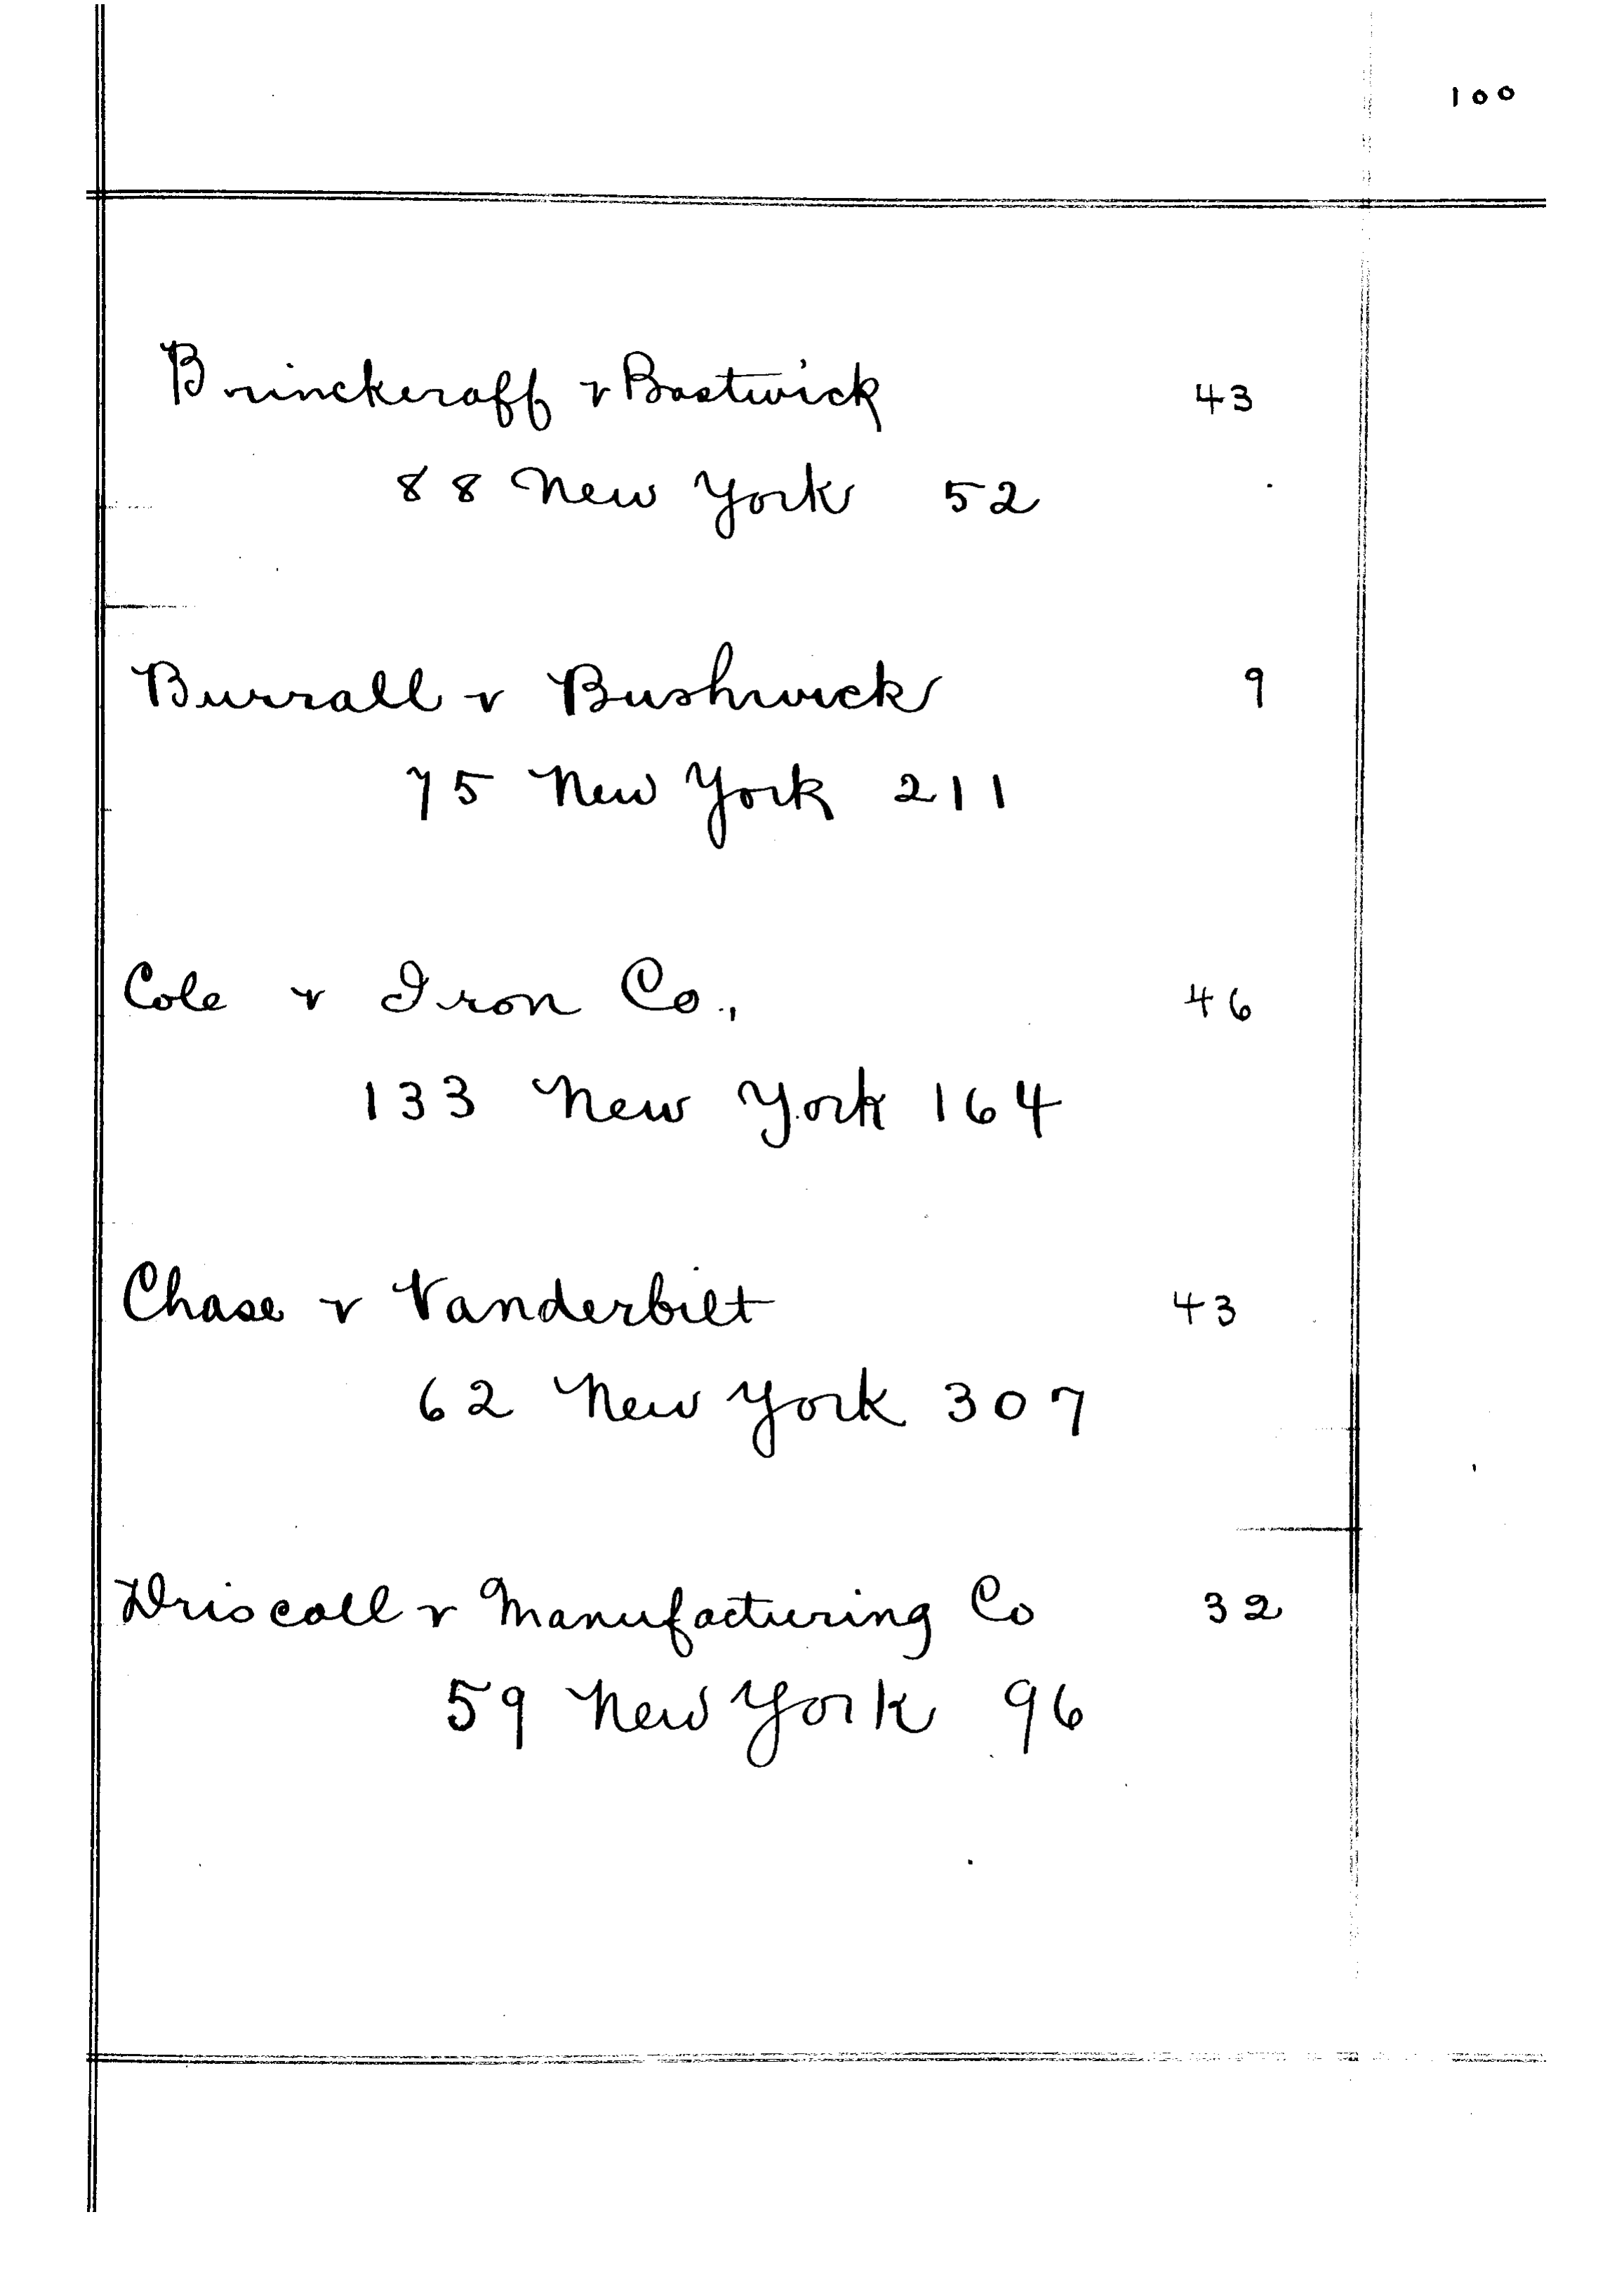 100
Brinckeraff v Bostwick 43
88 New York 52
Burrall v Bushwick 9
75 New York 211
Cole v Iron Co., 46
133 New York 164
Chase v Vanderbilt 43
62 New York 307
Driscoll v Manufacturing Co 32
59 New York 96